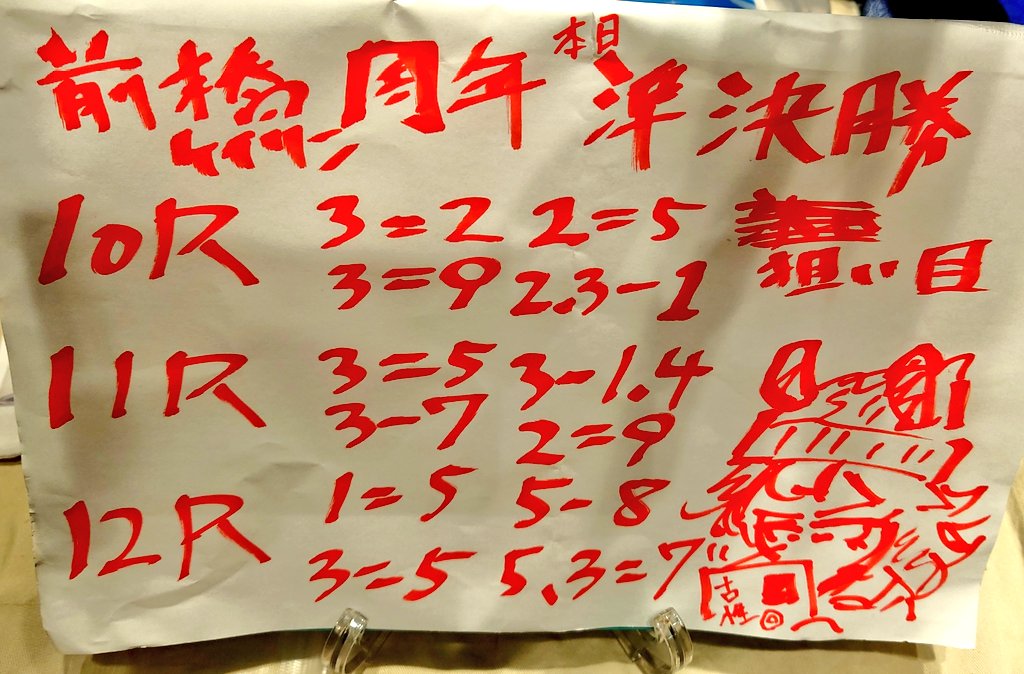 前橋 周年 本日 準決勝
10R 3=2 2=5
3=9 2.3-1 狙い目
11R 3=5 3-1.4
3-7 2=9
12R 1=5 5-8
3-=5 5.3=7
古性